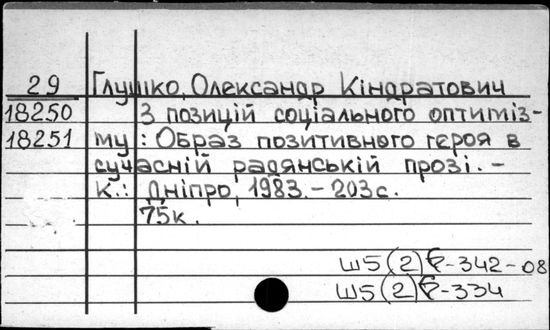 29 Глушко, Олександр Кіндратович
18250 З позицій соціального оптиміз-
18251 му : Образ позитивного героя в
сучасній радянській прозі. –
К.: Дніпро, 1983. – 203с.
75к.
Ш5(2)Р-342-08
Ш5(2)Р-334